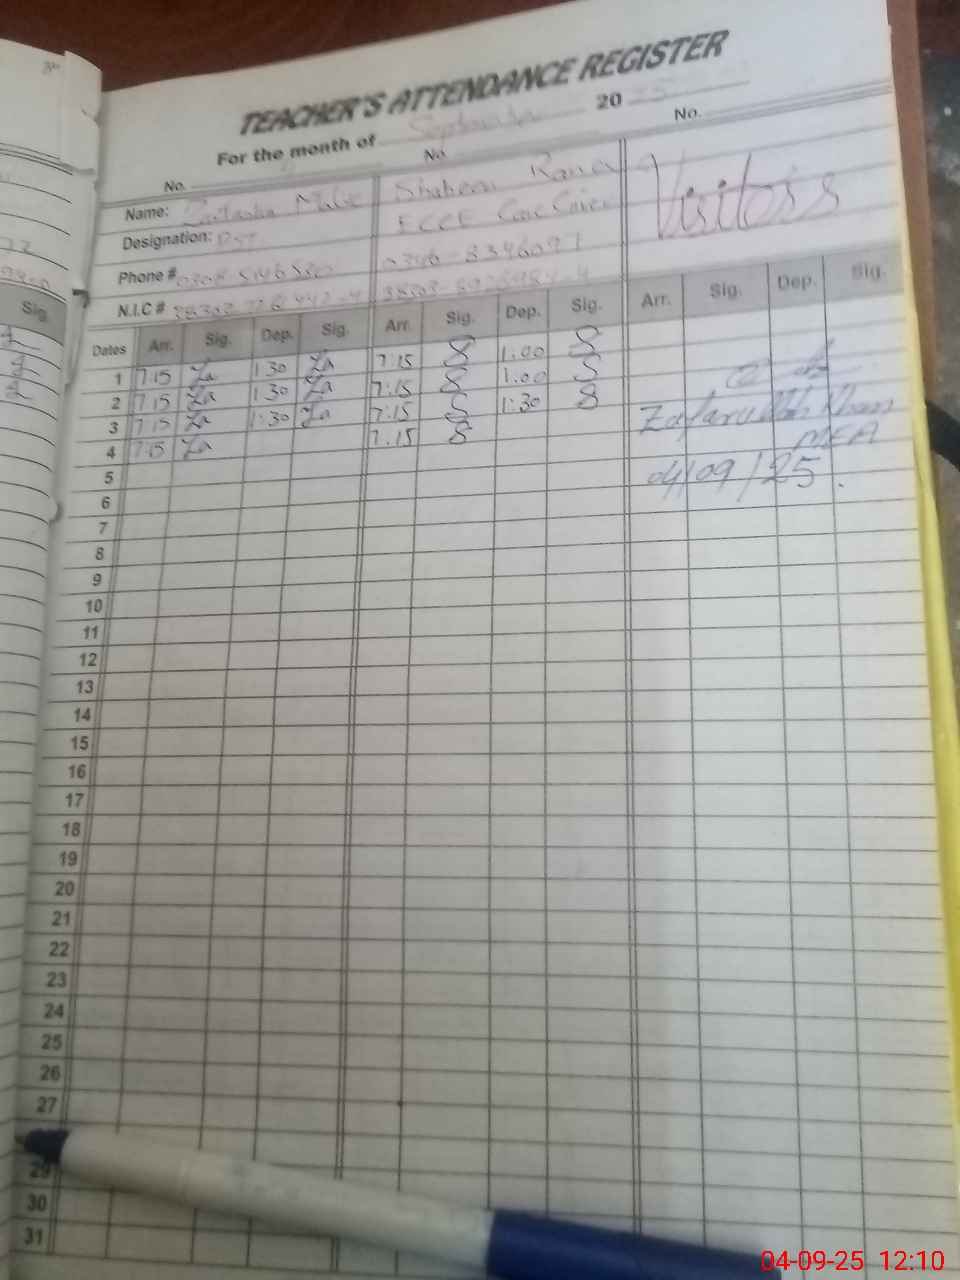 TEACHER'S ATTENDANCE REGISTER
For the month of September 20 25
No. No. No.
Name: Malik Shaheen Rana Visitors
Designation: PST ECCE Care Giver
Phone # 0346-8346097
N.I.C #
Dates Arr. Sig. Dep. Sig. Arr. Sig. Dep. Sig. Arr. Sig. Dep. Sig.
1 7:15 Za 1:30 Za 7:15 S 1:00 S
2 7:15 Za 1:30 Za 7:15 S 1:00 S
3 7:15 Za 1:30 Za 7:15 S 1:30 S Zafarullah Khan
4 7:15 Za 7:15 S MEA
5 04/09/25.
6
7
8
9
10
11
12
13
14
15
16
17
18
19
20
21
22
23
24
25
26
27
29
30
31
Sig.
04-09-25 12:10